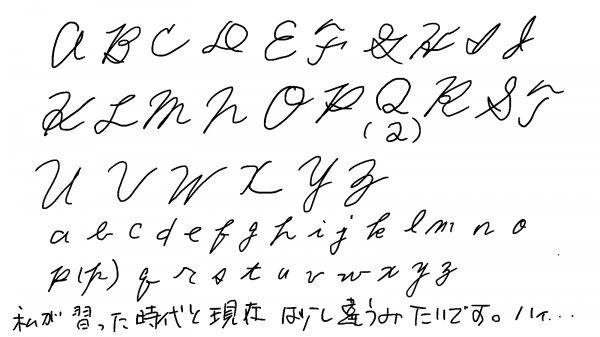 A B C D E F G H I J
K L M N O P Q R S T
(2)
U V W X Y Z
a b c d e f g h i j k l m n o
p(p) q r s t u v w x y z
私が習った時代と現在は少し違うみたいです。ハイ...